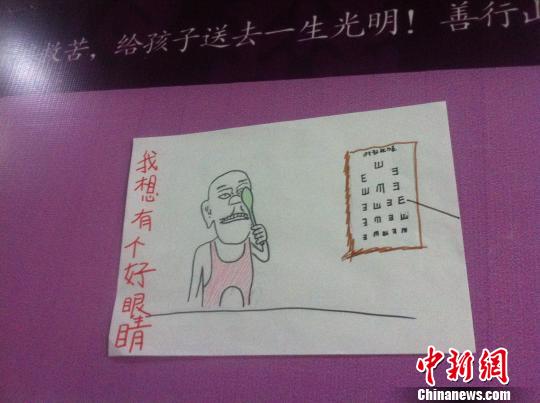 救苦，给孩子送去一生光明！善行山
我想有个好眼睛
中新网
Chinanews.com